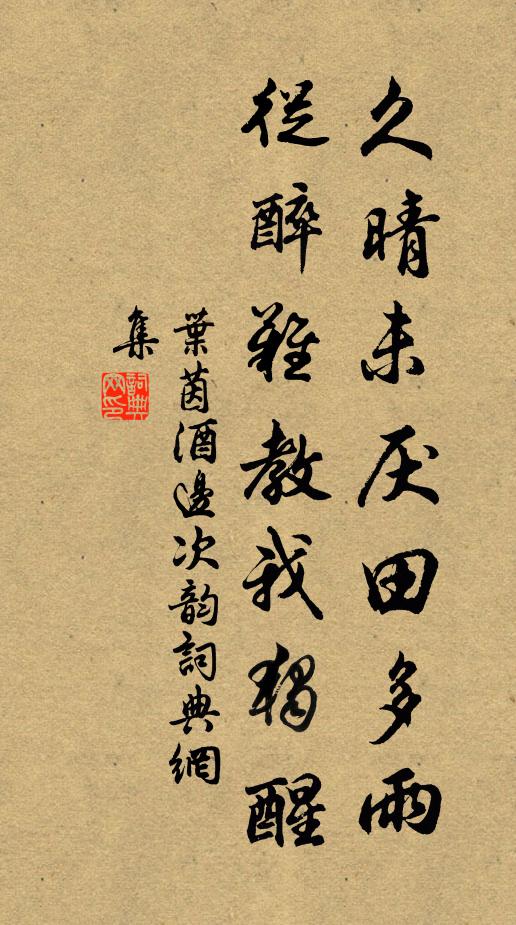 久晴未厌田多雨
從醉難教我獨醒
葉茵酒邊次韵詞典網
集
詞典網印